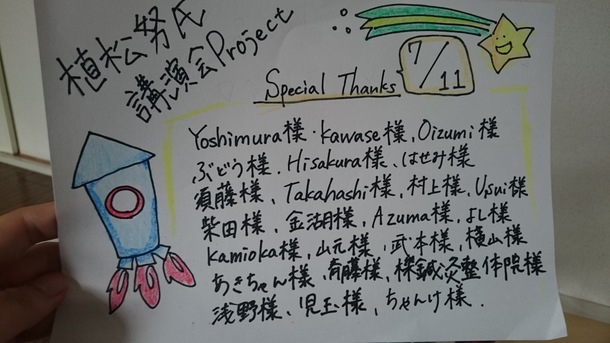 植松努氏
講演会Project
Special Thanks
7/11
Yoshimura様・Kawase様、Oizumi様
ぶどう様、Hisakura様、はせみ様
須藤様、Takahashi様、村上様、Usui様
柴田様、金湖様、Azuma様、よし様
Kamioka様、山元様、武本様、横山様
あきちゃん様、斉藤様、欅鍼灸整体院様
浅野様、児玉様、ちゃんけ様.